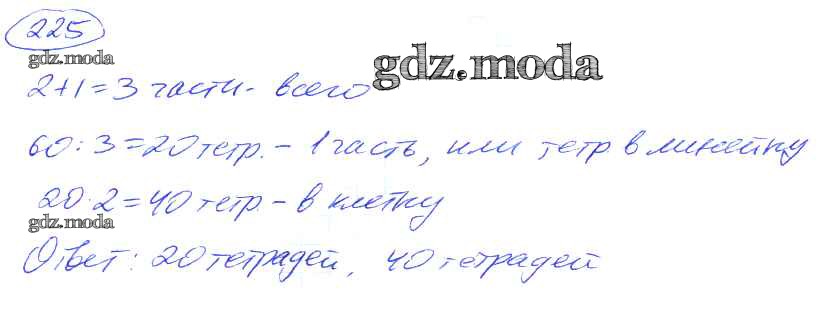 225
gdz.moda
gdz.moda
2+1=3 части - всего
60:3=20 тетр. - 1 часть, или тетр в линейку
20·2=40 тетр. - в клетку
gdz.moda
Ответ: 20 тетрадей, 40 тетрадей